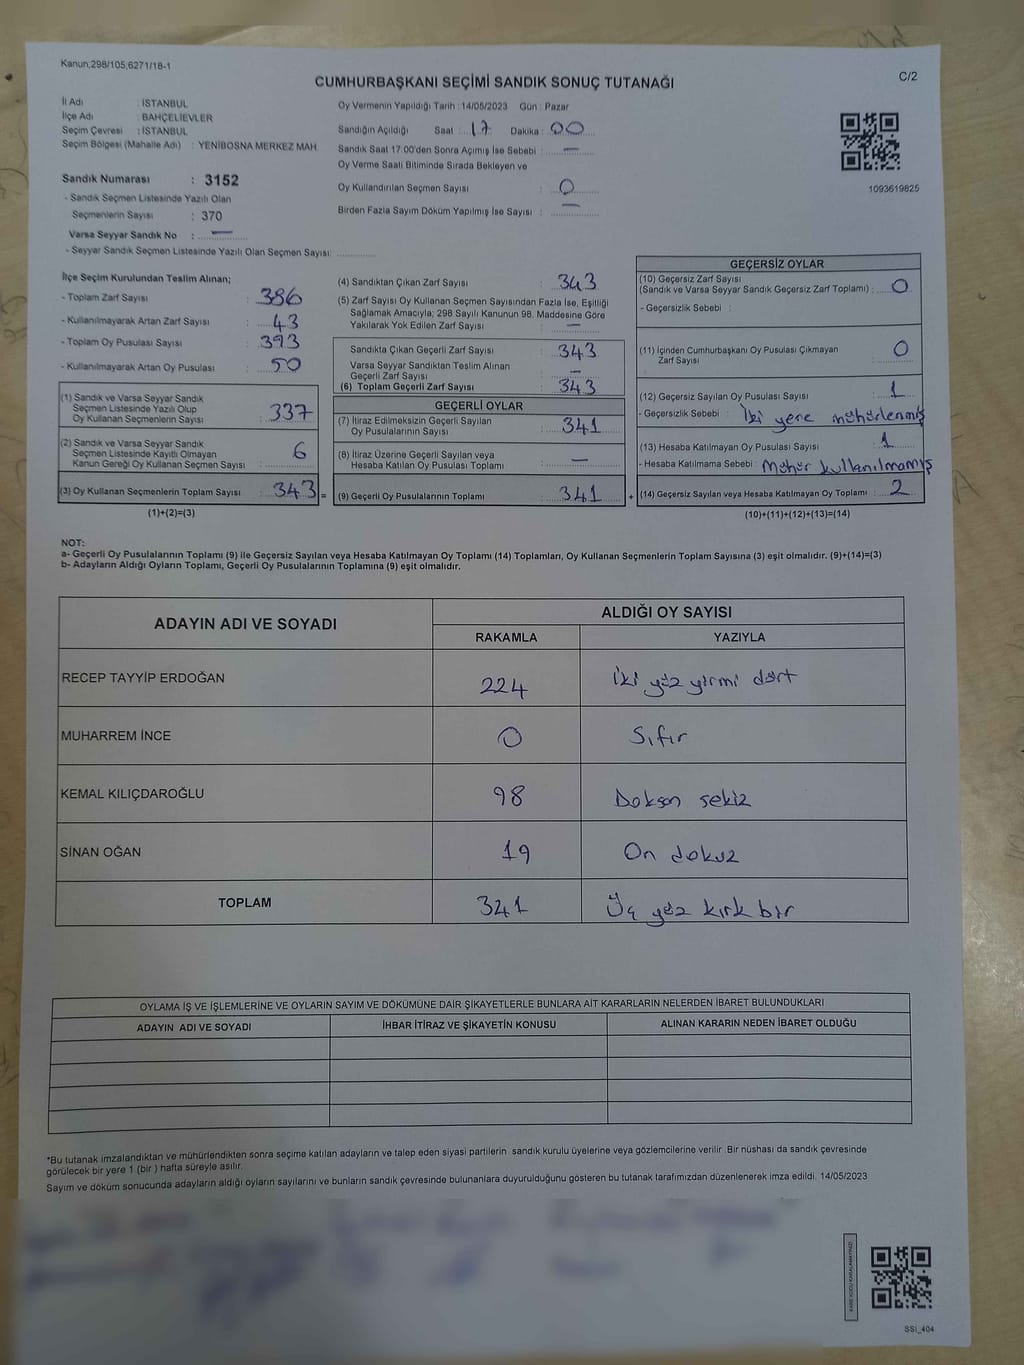 Kanun,298/105,6271/18-1
C/2
CUMHURBAŞKANI SEÇİMİ SANDIK SONUÇ TUTANAĞI
İl Adı : İSTANBUL
İlçe Adı : BAHÇELİEVLER
Seçim Çevresi : İSTANBUL
Seçim Bölgesi (Mahalle Adı) : YENİBOSNA MERKEZ MAH.
Sandık Numarası : 3152
- Sandık Seçmen Listesinde Yazılı Olan
Seçmenlerin Sayısı : 370
Varsa Seyyar Sandık No : —
- Seyyar Sandık Seçmen Listesinde Yazılı Olan Seçmen Sayısı:
Oy Vermenin Yapıldığı Tarih : 14/05/2023 Gün : Pazar
Sandığın Açıldığı Saat : 17 Dakika : 00
Sandık Saat 17.00'den Sonra Açımış İse Sebebi : —
Oy Verme Saati Bitiminde Sırada Bekleyen ve
Oy Kullandırılan Seçmen Sayısı : 0
Birden Fazla Sayım Döküm Yapılmış İse Sayısı : —
1093619825
İlçe Seçim Kurulundan Teslim Alınan;
- Toplam Zarf Sayısı : 386
- Kullanılmayarak Artan Zarf Sayısı : 43
- Toplam Oy Pusulası Sayısı : 393
- Kullanılmayarak Artan Oy Pusulası : 50
(1) Sandık ve Varsa Seyyar Sandık
Seçmen Listesinde Yazılı Olup
Oy Kullanan Seçmenlerin Sayısı : 337
(2) Sandık ve Varsa Seyyar Sandık
Seçmen Listesinde Kayıtlı Olmayan
Kanun Gereği Oy Kullanan Seçmen Sayısı : 6
(3) Oy Kullanan Seçmenlerin Toplam Sayısı : 343 =
(1)+(2)=(3)
(4) Sandıktan Çıkan Zarf Sayısı : 343
(5) Zarf Sayısı Oy Kullanan Seçmen Sayısından Fazla İse, Eşitliği
Sağlamak Amacıyla; 298 Sayılı Kanunun 98. Maddesine Göre
Yakılarak Yok Edilen Zarf Sayısı : —
Sandıkta Çıkan Geçerli Zarf Sayısı : 343
Varsa Seyyar Sandıktan Teslim Alınan
Geçerli Zarf Sayısı : —
(6) Toplam Geçerli Zarf Sayısı : 343
GEÇERLİ OYLAR
(7) İtiraz Edilmeksizin Geçerli Sayılan
Oy Pusulalarının Sayısı : 341
(8) İtiraz Üzerine Geçerli Sayılan veya
Hesaba Katılan Oy Pusulası Toplamı : —
(9) Geçerli Oy Pusulalarının Toplamı : 341 +
GEÇERSİZ OYLAR
(10) Geçersiz Zarf Sayısı
(Sandık ve Varsa Seyyar Sandık Geçersiz Zarf Toplamı) : 0
- Geçersizlik Sebebi :
(11) İçinden Cumhurbaşkanı Oy Pusulası Çıkmayan
Zarf Sayısı : 0
(12) Geçersiz Sayılan Oy Pusulası Sayısı : 1
- Geçersizlik Sebebi : İki yere mühürlenmiş
(13) Hesaba Katılmayan Oy Pusulası Sayısı : 1
- Hesaba Katılmama Sebebi : Mühür kullanılmamış
(14) Geçersiz Sayılan veya Hesaba Katılmayan Oy Toplamı : 2
(10)+(11)+(12)+(13)=(14)
NOT:
a- Geçerli Oy Pusulalarının Toplamı (9) ile Geçersiz Sayılan veya Hesaba Katılmayan Oy Toplamı (14) Toplamları, Oy Kullanan Seçmenlerin Toplam Sayısına (3) eşit olmalıdır. (9)+(14)=(3)
b- Adayların Aldığı Oyların Toplamı, Geçerli Oy Pusulalarının Toplamına (9) eşit olmalıdır.
ADAYIN ADI VE SOYADI
ALDIĞI OY SAYISI
RAKAMLA YAZIYLA
RECEP TAYYİP ERDOĞAN 224 İki yüz yirmi dört
MUHARREM İNCE 0 Sıfır
KEMAL KILIÇDAROĞLU 98 Doksan sekiz
SİNAN OĞAN 19 On dokuz
TOPLAM 341 Üç yüz kırk bir
OYLAMA İŞ VE İŞLEMLERİNE VE OYLARIN SAYIM VE DÖKÜMÜNE DAİR ŞİKAYETLERLE BUNLARA AİT KARARLARIN NELERDEN İBARET BULUNDUKLARI
ADAYIN ADI VE SOYADI İHBAR İTİRAZ VE ŞİKAYETİN KONUSU ALINAN KARARIN NEDEN İBARET OLDUĞU
*Bu tutanak imzalandıktan ve mühürlendikten sonra seçime katılan adayların ve talep eden siyasi partilerin sandık kurulu üyelerine veya gözlemcilerine verilir. Bir nüshası da sandık çevresinde
görülecek bir yere 1 (bir ) hafta süreyle asılır.
Sayım ve döküm sonucunda adayların aldığı oyların sayılarını ve bunların sandık çevresinde bulunanlara duyurulduğunu gösteren bu tutanak tarafımızdan düzenlenerek imza edildi. 14/05/2023
KARE KODU KARALAMAYINIZ!
SSİ_404